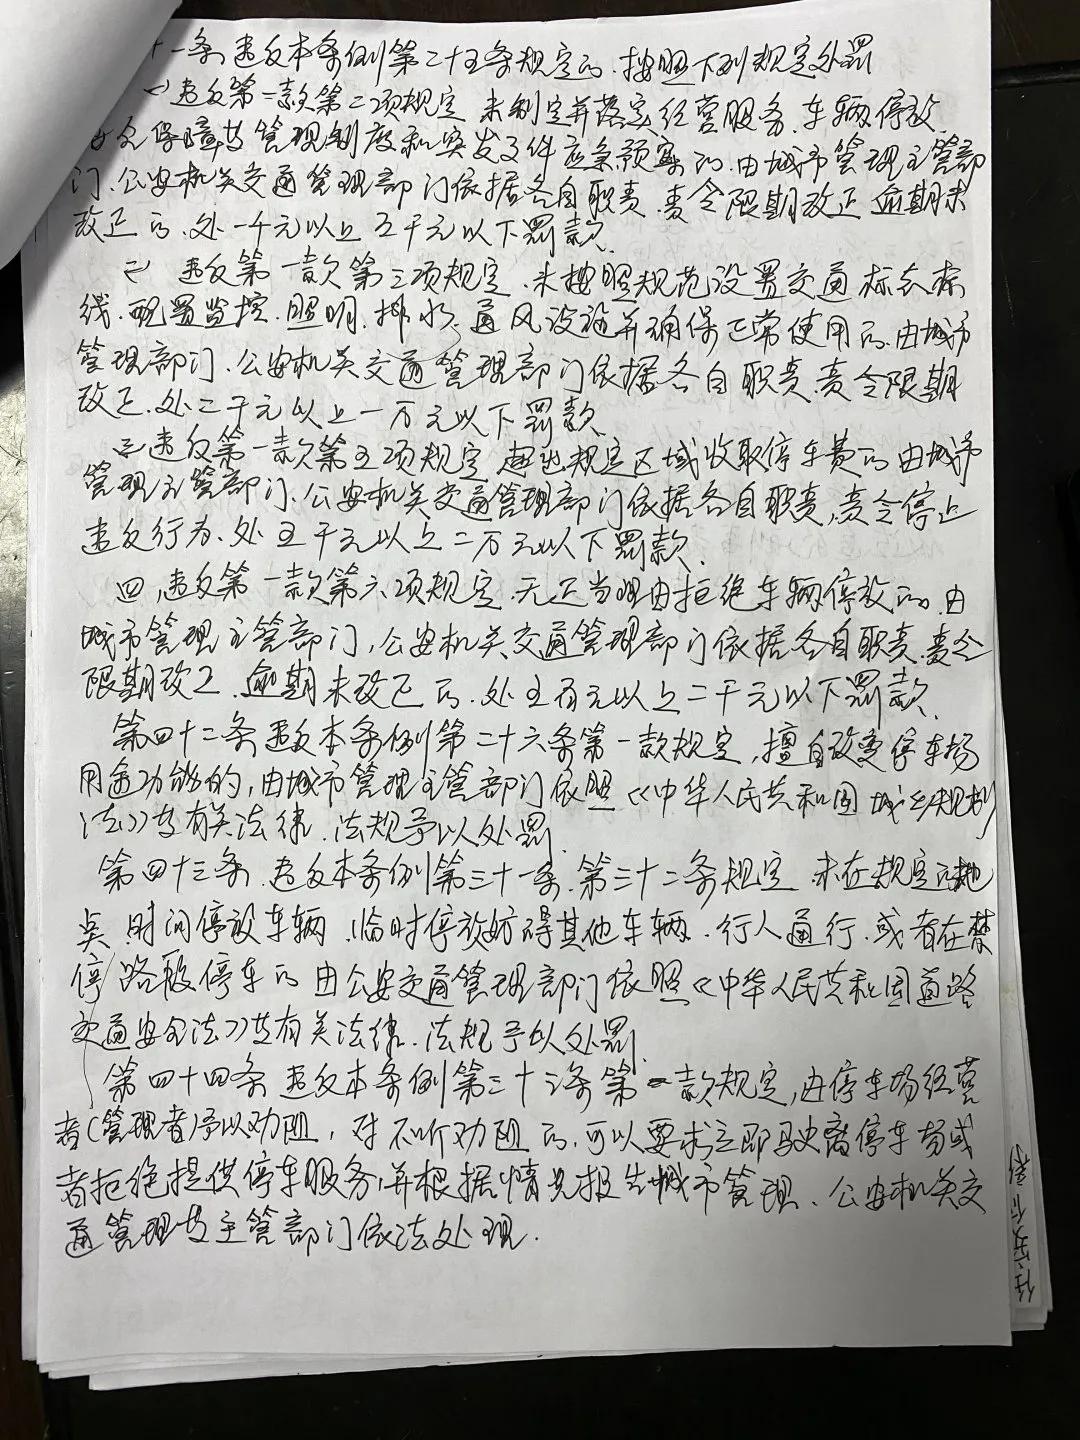 十一条 违反本条例第二十五条规定的、按照下列规定处罚
(一)违反第一款第二项规定 未制定并落实经营服务、车辆停放、
安全保障等管理制度和突发事件应急预案的、由城市管理主管部
门、公安机关交通管理部门依据各自职责、责令限期改正 逾期未
改正的、处一千元以上五千元以下罚款.
二 违反第一款第三项规定、未按照规范设置交通标志标
线、配置监控、照明、排水、通风设施并确保正常使用的、由城市
管理部门、公安机关交通管理部门依据各自职责、责令限期
改正、处二千元以上一万元以下罚款
三违反第一款第五项规定 超出规定区域收取停车费的 由城市
管理主管部门、公安机关交通管理部门依据各自职责、责令停止
违反行为、处五千元以上二万元以下罚款.
四、违反第一款第六项规定、无正当理由拒绝车辆停放的、由
城市管理主管部门,公安机关交通管理部门依据各自职责、责令
限期改正、逾期未改正的、处五百元以上二千元以下罚款.
第四十二条 违反本条例第二十六条第一款规定,擅自改变停车场
用途功能的,由城市管理主管部门依照《中华人民共和国城乡规划
法》等有关法律、法规予以处罚.
第四十三条、违反本条例第三十一条、第三十二条规定 未在规定的地
点 时间停放车辆、临时停放妨碍其他车辆、行人通行、或者在禁
停路段停车的 由公安交通管理部门依照《中华人民共和国道路
交通安全法》等有关法律、法规予以处罚.
第四十四条 违反本条例第三十三条第一款规定,由停车场经营
者(管理者)予以劝阻,对不听劝阻的、可以要求立即驶离停车场或
者拒绝提供停车服务,并根据情况报告城市管理、公安机关交
通管理等主管部门依法处理.